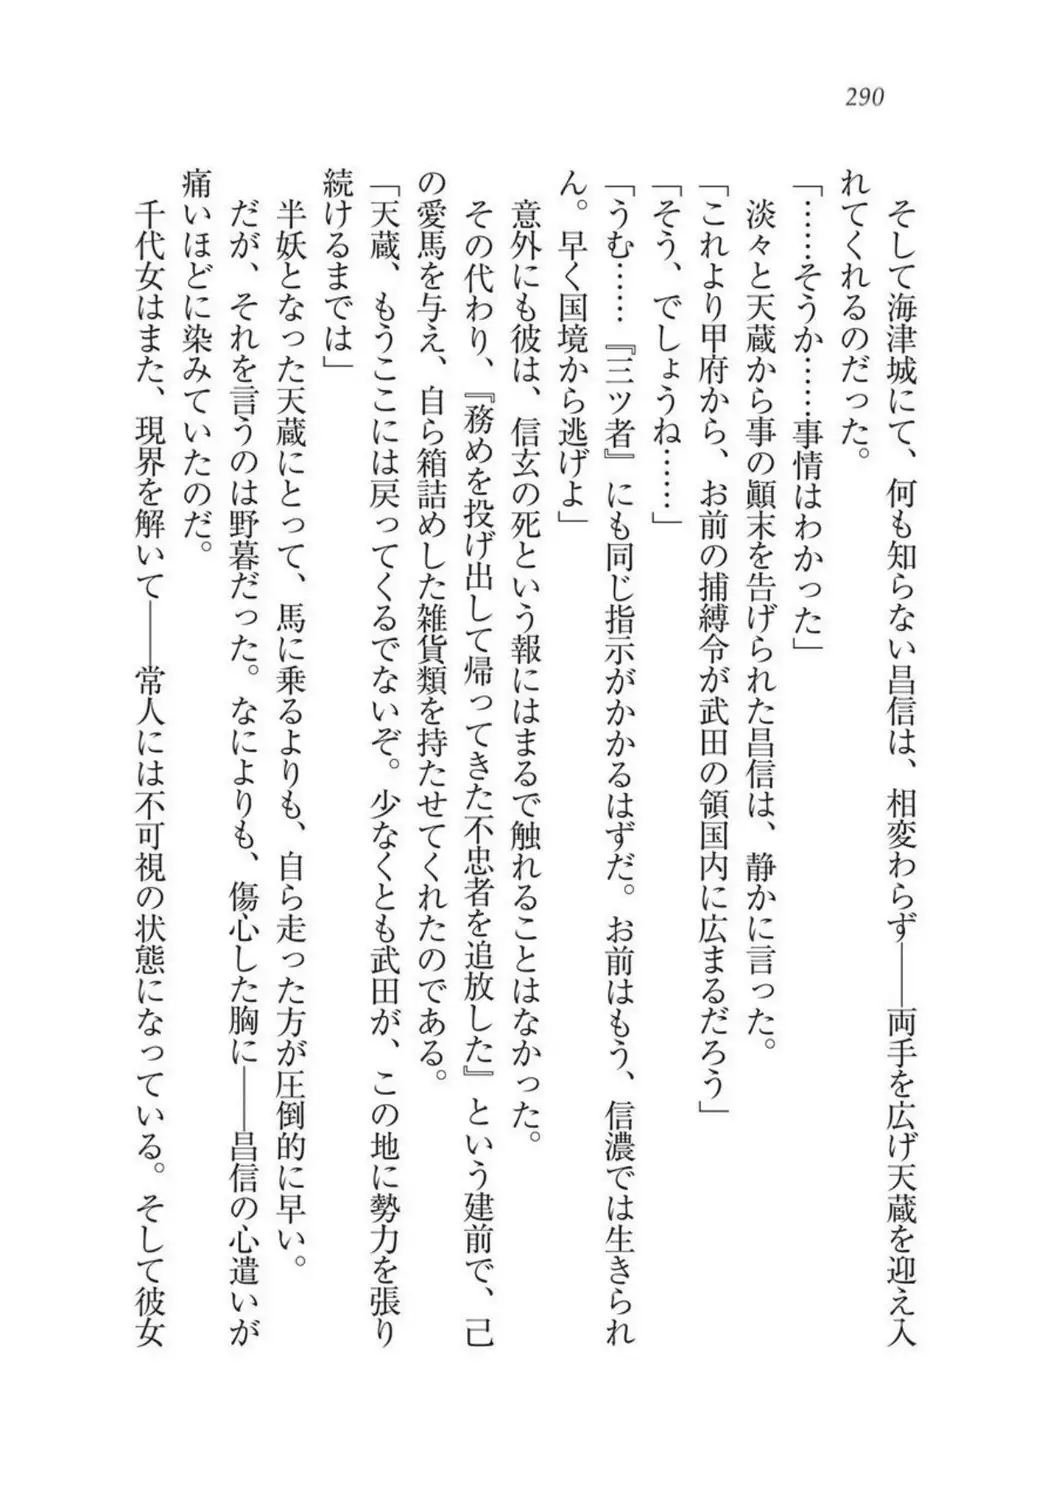 290
　そして海津城にて、何も知らない昌信は、相変わらず――両手を広げ天蔵を迎え入
れてくれるのだった。
「……そうか……事情はわかった」
　淡々と天蔵から事の顚末を告げられた昌信は、静かに言った。
「これより甲府から、お前の捕縛令が武田の領国内に広まるだろう」
「そう、でしょうね……」
「うむ……『三ツ者』にも同じ指示がかかるはずだ。お前はもう、信濃では生きられ
ん。早く国境から逃げよ」
　意外にも彼は、信玄の死という報にはまるで触れることはなかった。
　その代わり、『務めを投げ出して帰ってきた不忠者を追放した』という建前で、己
の愛馬を与え、自ら箱詰めした雑貨類を持たせてくれたのである。
「天蔵、もうここには戻ってくるでないぞ。少なくとも武田が、この地に勢力を張り
続けるまでは」
　半妖となった天蔵にとって、馬に乗るよりも、自ら走った方が圧倒的に早い。
　だが、それを言うのは野暮だった。なによりも、傷心した胸に――昌信の心遣いが
痛いほどに染みていたのだ。
　千代女はまた、現界を解いて――常人には不可視の状態になっている。そして彼女